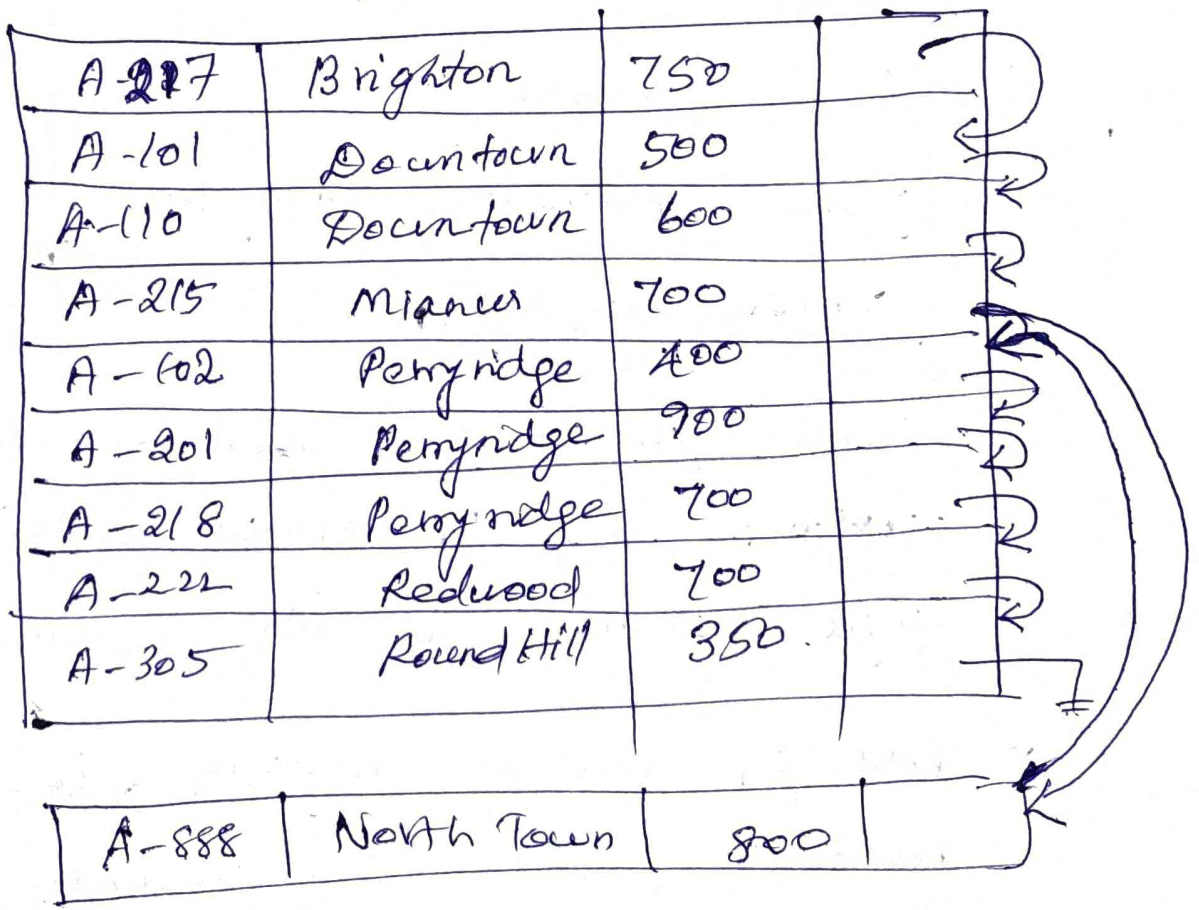 A-217 Brighton 750
A-101 Downtown 500
A-110 Downtown 600
A-215 Mianus 700
A-102 Perryridge 400
A-201 Perryridge 900
A-218 Perryridge 700
A-222 Redwood 700
A-305 Round Hill 350
A-888 North Town 800